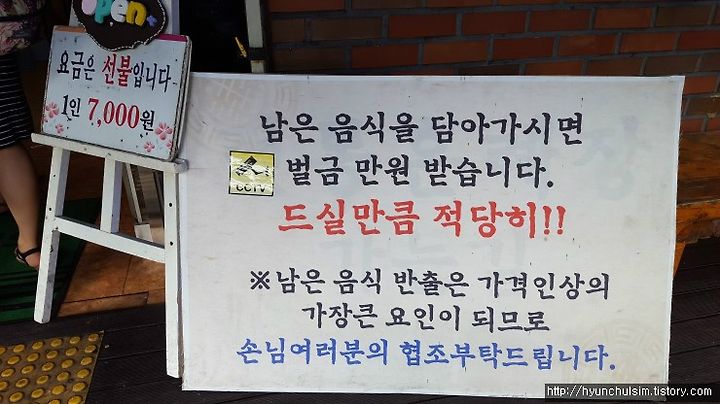 open
요금은 선불입니다
1인 7,000원
남은 음식을 담아가시면
벌금 만원 받습니다.
CCTV
드실만큼 적당히!!
※남은 음식 반출은 가격인상의
가장큰 요인이 되므로
손님여러분의 협조부탁드립니다.
http://hyunchulsim.tistory.com